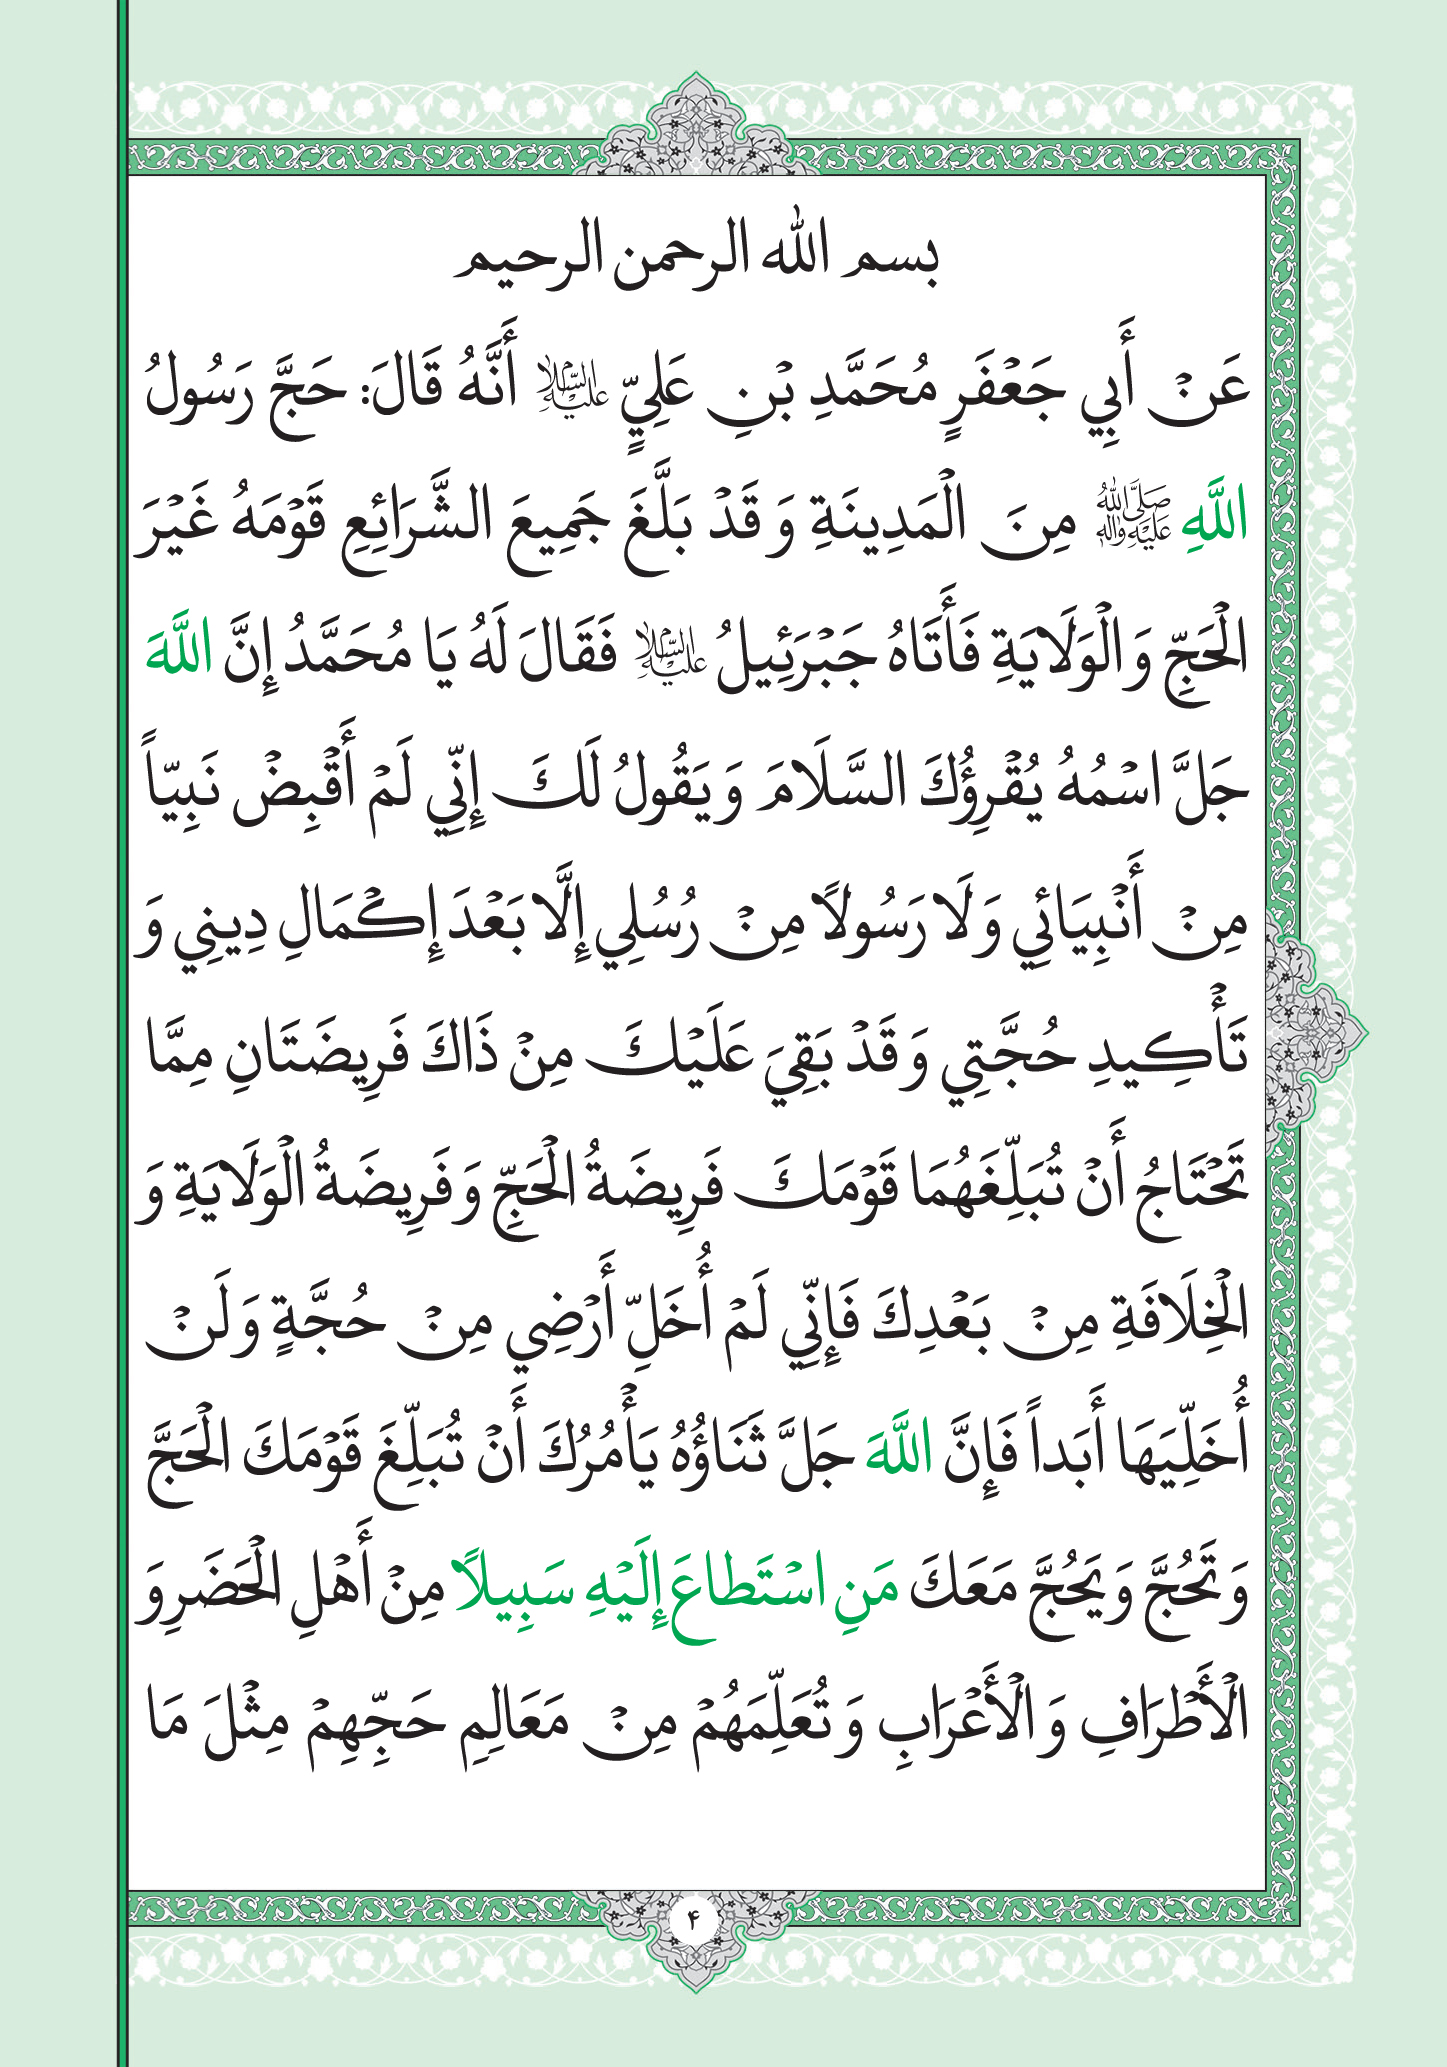 بسم الله الرحمن الرحيم
عَنْ أَبِي جَعْفَرٍ مُحَمَّدِ بْنِ عَلِيٍّ عَلَيْهِ السَّلَامُ أَنَّهُ قَالَ: حَجَّ رَسُولُ
اللَّهِ صَلَّى اللهُ عَلَيْهِ وَآلِهِ مِنَ الْمَدِينَةِ وَ قَدْ بَلَّغَ جَمِيعَ الشَّرَائِعِ قَوْمَهُ غَيْرَ
الْحَجِّ وَ الْوَلَايَةِ فَأَتَاهُ جَبْرَئِيلُ عَلَيْهِ السَّلَامُ فَقَالَ لَهُ يَا مُحَمَّدُ إِنَّ اللَّهَ
جَلَّ اسْمُهُ يُقْرِؤُكَ السَّلَامَ وَ يَقُولُ لَكَ إِنِّي لَمْ أَقْبِضْ نَبِيّاً
مِنْ أَنْبِيَائِي وَ لَا رَسُولًا مِنْ رُسُلِي إِلَّا بَعْدَ إِكْمَالِ دِينِي وَ
تَأْكِيدِ حُجَّتِي وَ قَدْ بَقِيَ عَلَيْكَ مِنْ ذَاكَ فَرِيضَتَانِ مِمَّا
تَحْتَاجُ أَنْ تُبَلِّغَهُمَا قَوْمَكَ فَرِيضَةُ الْحَجِّ وَ فَرِيضَةُ الْوَلَايَةِ وَ
الْخِلَافَةِ مِنْ بَعْدِكَ فَإِنِّي لَمْ أُخَلِّ أَرْضِي مِنْ حُجَّةٍ وَ لَنْ
أُخَلِّيَهَا أَبَداً فَإِنَّ اللَّهَ جَلَّ ثَنَاؤُهُ يَأْمُرُكَ أَنْ تُبَلِّغَ قَوْمَكَ الْحَجَّ
وَ تَحُجَّ وَ يَحُجَّ مَعَكَ مَنِ اسْتَطاعَ إِلَيْهِ سَبِيلًا مِنْ أَهْلِ الْحَضَرِ وَ
الْأَطْرَافِ وَ الْأَعْرَابِ وَ تُعَلِّمَهُمْ مِنْ مَعَالِمِ حَجِّهِمْ مِثْلَ مَا
۴